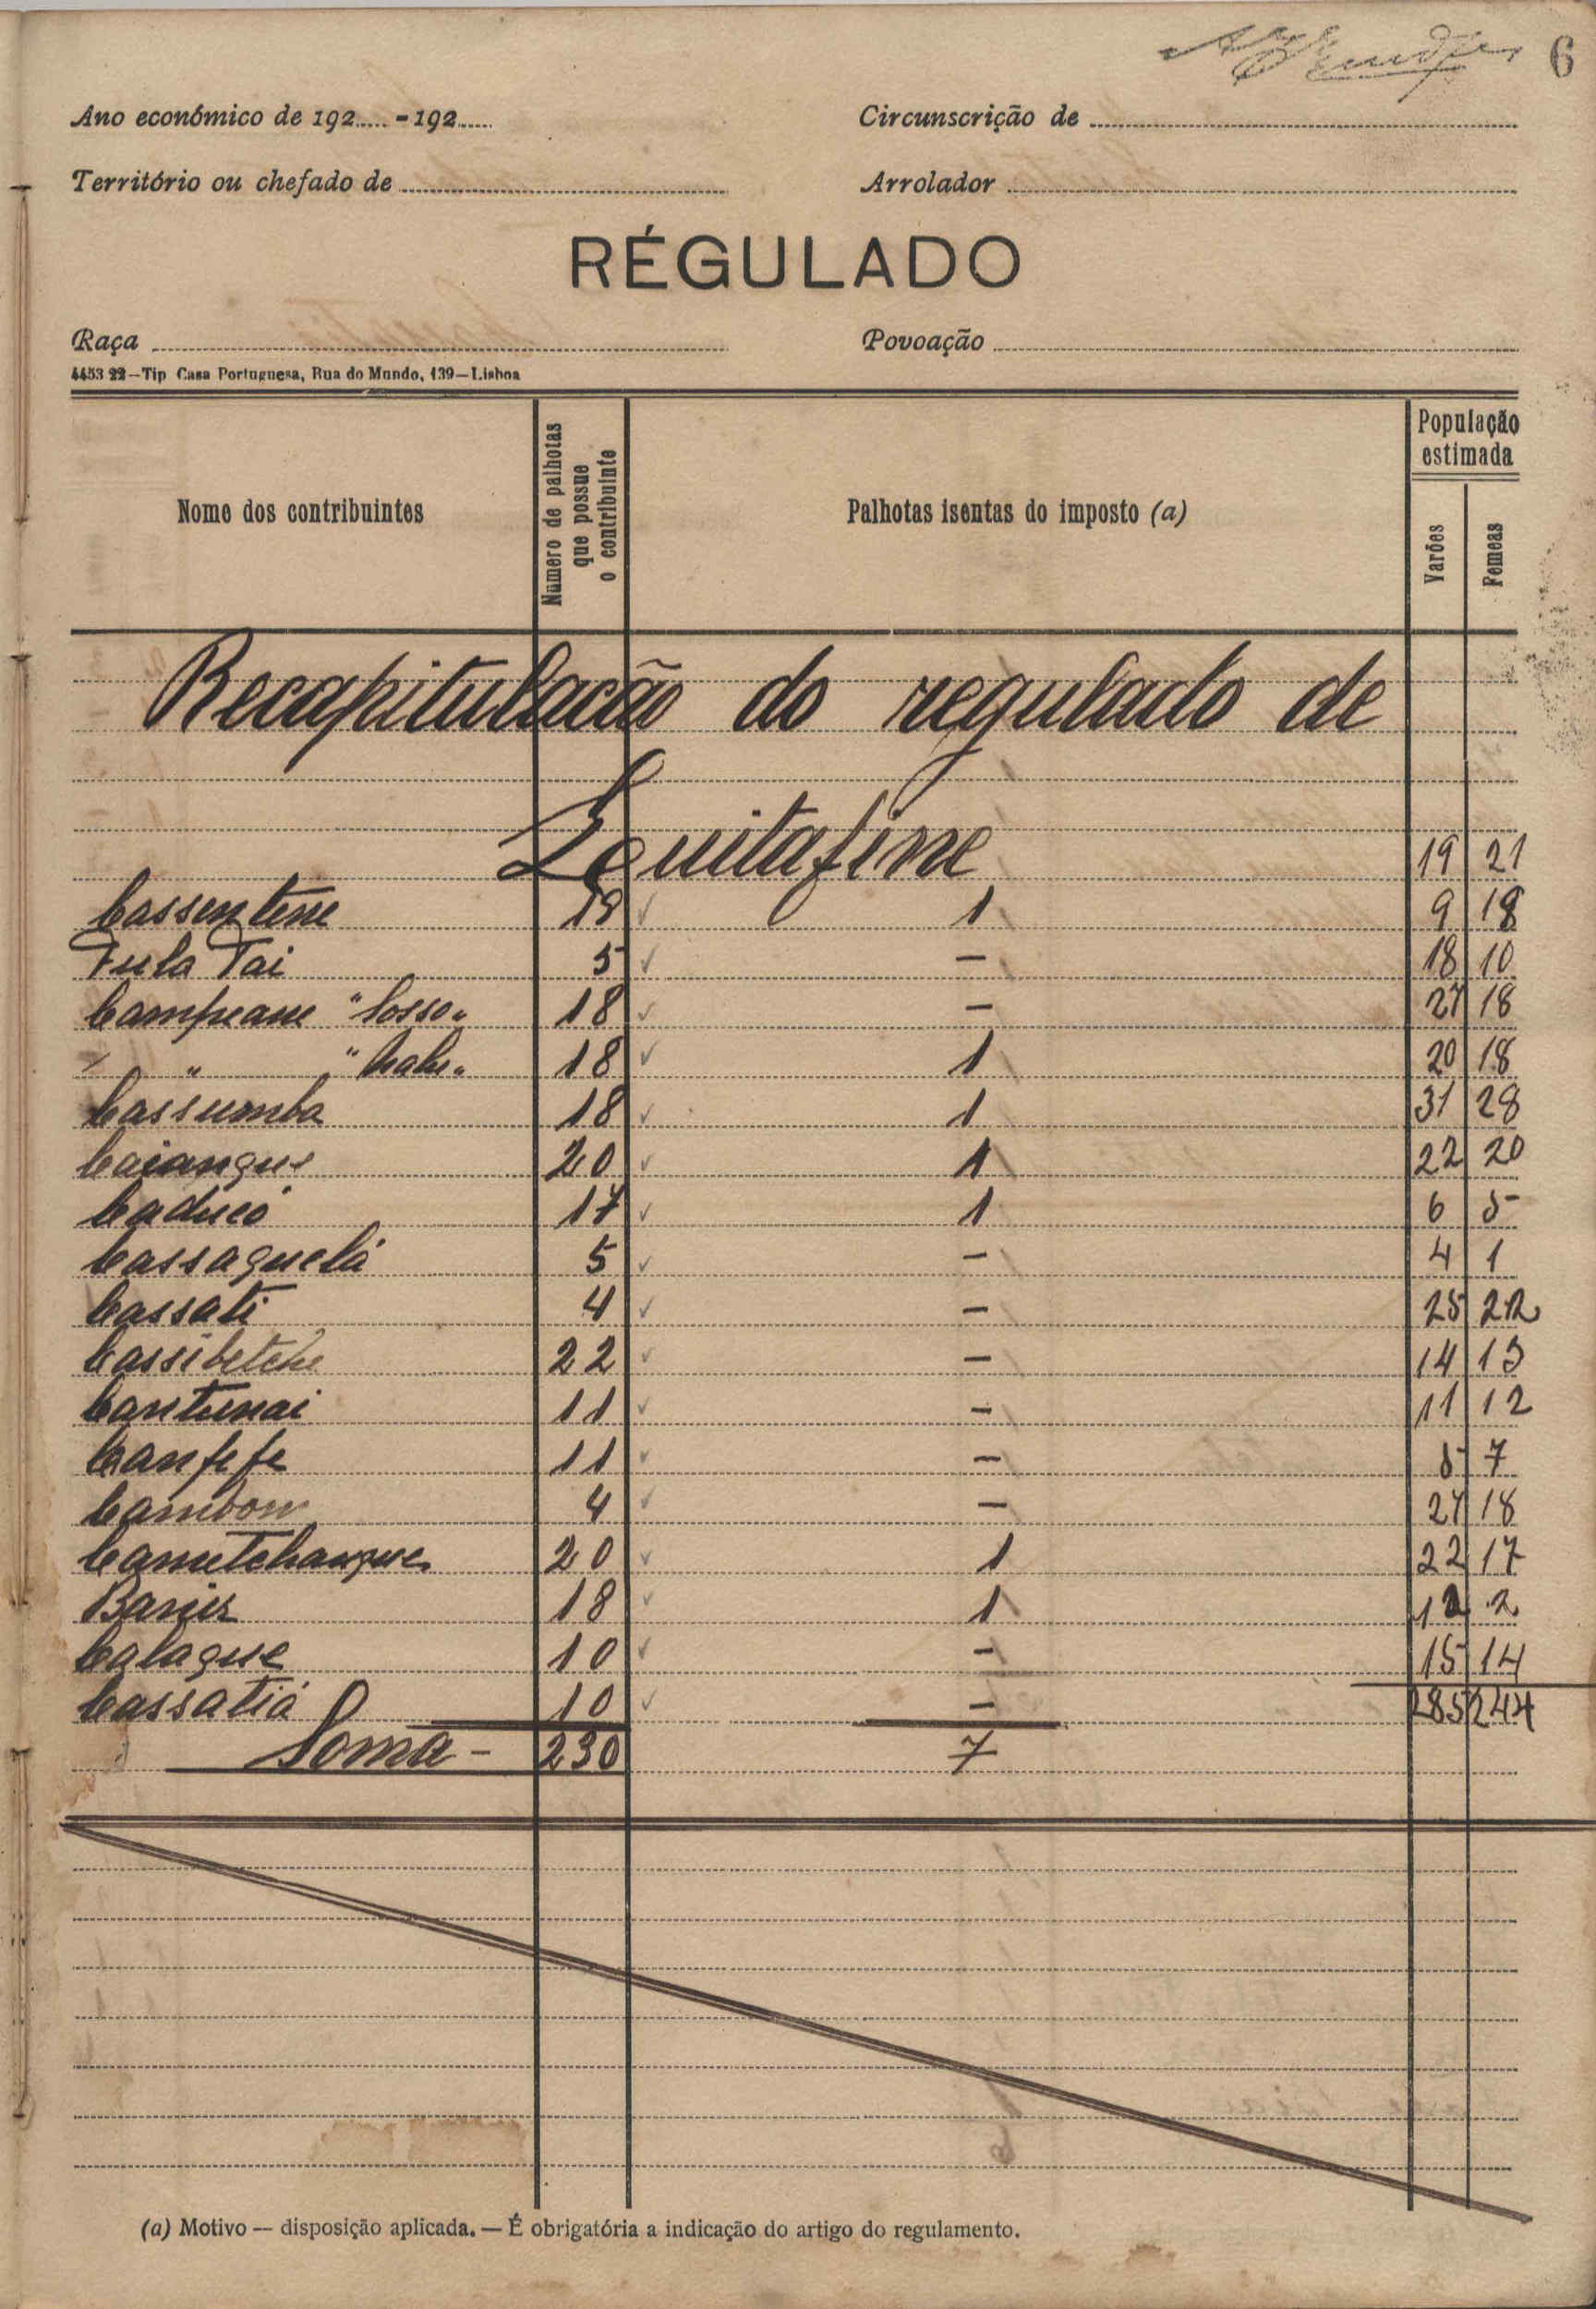 6
Ano económico de 192..... - 192......
Circunscrição de
Território ou chefado de
Arrolador
RÉGULADO
Raça
Povoação
4453 22—Tip Casa Portuguesa, Rua do Mundo, 139—Lisboa
Nome dos contribuintes
Número de palhotas que possue o contribuinte
Palhotas isentas do imposto (a)
População estimada
Varões
Femeas
Recapitulacão do regulado de
Quitafine
19 21
Cassentene 19 1 9 18
Fula Tai 5 — 18 10
Campeane "Sosso" 18 — 27 18
" " 18 1 20 18
Cassumba 18 1 31 28
Caiangue 20 1 22 20
Caducó 17 1 6 5
Cassaquelá 5 — 4 1
Cassati 4 — 25 22
Cassibetche 22 — 14 13
Cantunai 11 — 11 12
Canfefe 11 — 5 7
Cambom 4 — 27 18
Camtchangue 20 1 22 17
Banir 18 1 2
Calaque 10 — 15 14
Cassatiá 10 — 285 244
Soma - 230 7
(a) Motivo — disposição aplicada. — É obrigatória a indicação do artigo do regulamento.